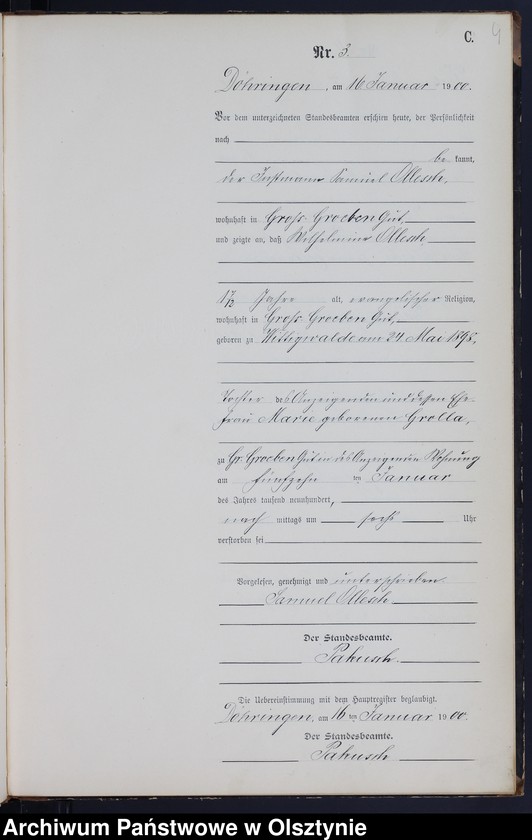 C.
4
Nr. 3.
Döhringen, am 16 Januar 1900.
Vor dem unterzeichneten Standesbeamten erschien heute, der Persönlichkeit
nach
be kannt,
der Instmann Samuel Ollesch,
wohnhaft in Gross Groeben Gut,
und zeigte an, daß Wilhelmine Ollesch,
1 7/12 Jahre alt, evangelischer Religion,
wohnhaft in Gross Groeben Gut,
geboren zu Wittigwalde am 24 Mai 1898,
Tochter des Anzeigenden und dessen Ehe-
frau Marie geborenen Grolla,
zu Gr. Groeben Gut in des Anzeigenden Wohnung
am fünfzehn ten Januar
des Jahres tausend neunhundert,
nach mittags um sechs Uhr
verstorben sei
Vorgelesen, genehmigt und unterschrieben
Samuel Ollesch
Der Standesbeamte.
Pakusch.
Die Uebereinstimmung mit dem Hauptregister beglaubigt.
Döhringen, am 16 ten Januar 1900.
Der Standesbeamte.
Pakusch
Archiwum Państwowe w Olsztynie